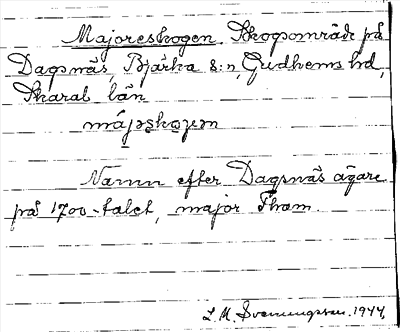 Majoreskogen. Skogsområde på
Dagsnäs, Bjärka s:n, Gudhems hd,
Skarab. län
májǝskoγen
Namn efter Dagsnäs ägare
på 1700-talet, major Tham.
L. M. Svenungsson. 1944.